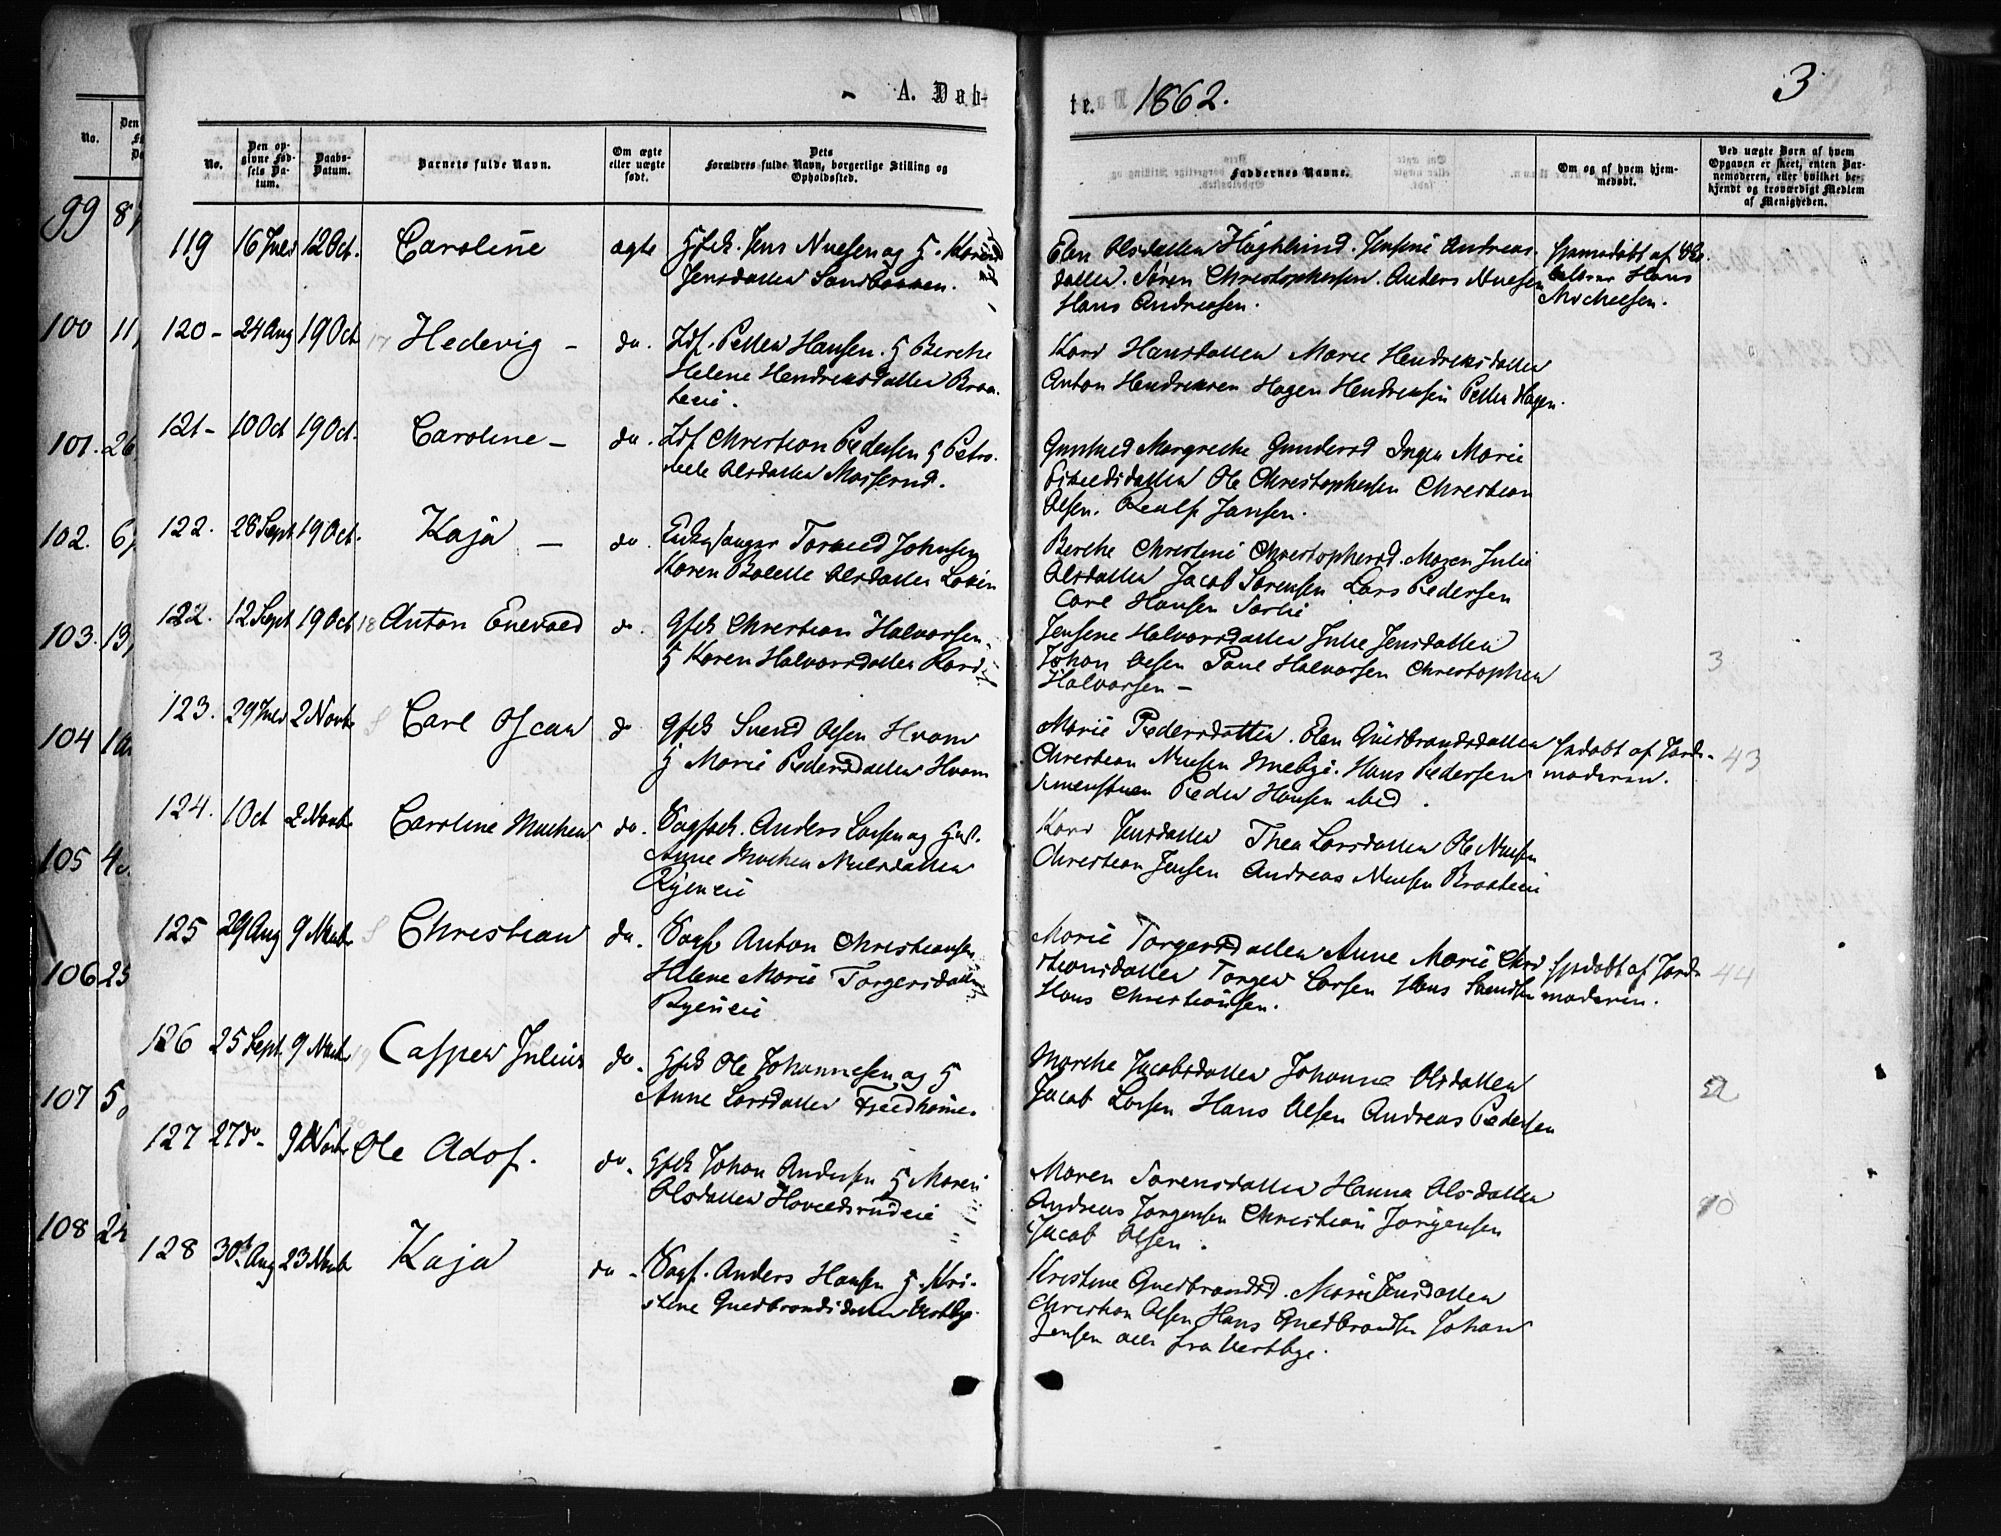 A. Døb-
te. 1862.
3
No.
Den op-
givne Fød-
sels Da-
tum.
Daabs-
Datum.
Barnets fulde Navn.
Om ægte
eller uægte
født.
Dets
Forældres fulde Navn, borgerlige Stilling og
Opholdssted.
Faddernes Navne.
Om og af hvem hjem-
medøbt.
Ved uægte Børn af hvem
Opgaven er skeet, enten Bar-
nemoderen, eller hvilket be-
kjendt og troværdigt Medlem
af Menigheden.
No.
99 8
100 11
101. 26
102. 6
103. 13
104
105 4
106 23
107 5
108
119 16 Juli 12 Oct. Caroline ægte Gfsk. Jens Nielsen og H. Karen
Jensdatter Sandbakken.
Elen Olsdatter Høghlind. Jensine Andreas-
datter. Søren Christophersen. Anders Nielsen
Hans Andreasen.
Hjemmedøbt af
Hans
Michelsen.
120- 24 Aug 19 Oct 17 Hedevig - do. Idf. Petter Hansen. H Berthe
Helene Hendriksdatter Braa-
teeie.
Kari Hansdatter Marie Hendriksdatter
Anton Hendriksen Hagen Hendriksen Petter Hagen.
121- 10 Oct 19 Oct. Caroline- do. Idf. Christian Pedersen H Petro-
nele Olsdatter Mosserud.
Gunhild Margrethe Gundersd Inger Marie
Eskildsdatter Ole Christophersen Christian
Olsen. Jansen.
122. 28 Sept 19 Oct. Kaja - do. Torvild Johnsen
Karen Bolette Olsdatter
Berthe Christine Christophersd. Maren Julie
Olsdatter Jacob Sørensen Lars Pedersen
Carl Hansen
122. 12 Sept 19 Oct 18 Anton Enevold do. Gfsk Christian Halvorsen
H Karen Halvorsdatter
Jensine Halvorsdatter Julie Jensdatter
Johan Olsen Paul Halvorsen Christopher
Halvorsen -
3
123. 29 Juli 2 Novb 8 Carl Oscar do Gfsk Svend Olsen Hvam
H Marie Pedersdatter Hvam
Marie Pedersdatter. Elen Gulbrandsdatter
Christian Nielsen Hans Pedersen
Simenstuen Peder Hansen ibid.
Hjdøbt af Jord-
moderen.
43
124. 1 Oct 2 Novb Caroline Mathea do. Anders Larsen og
Anne Mathea Nielsdatter
Ryeneie
Kari Jensdatter Thea Larsdatter Ole Nielsen
Christian Jensen Andreas Nielsen Braateeie
125 29 Aug 9 Novb 8 Christian do. Anton Christiansen
Helene Marie Torgersdatter
Ryeneie
Marie Torgersdatter Anne Marie Chri-
stiansdatter Torger Larsen Hans Svendsen
Hans Christiansen.
Hjdøbt af Jord-
moderen.
44
126 25 Sept. 9 Novb 19 Casper Julius do. Gfsk Ole Johannesen og H
Anne Larsdatter
Marthe Jacobsdatter Johanne Olsdatter
Jacob Larsen Hans Olsen Andreas Pedersen
127 27 do- 9 Novb Ole Adof. do. Gfsk Johan Andersen H Maren
Olsdatter Hovelsrudeie
Maren Sørensdatter Hanna Olsdatter
Andreas Jørgensen Christian Jørgensen
Jacob Olsen.
128 30 Aug 23 Novb Kaja do- Anders Hansen H. Kri-
stine Gulbrandsdatter Vestbye.
Kristine Gulbrandsd. Mari Jensdatter
Christian Olsen Hans Gulbrandsen Johan
Jensen alle fra Vestbye.